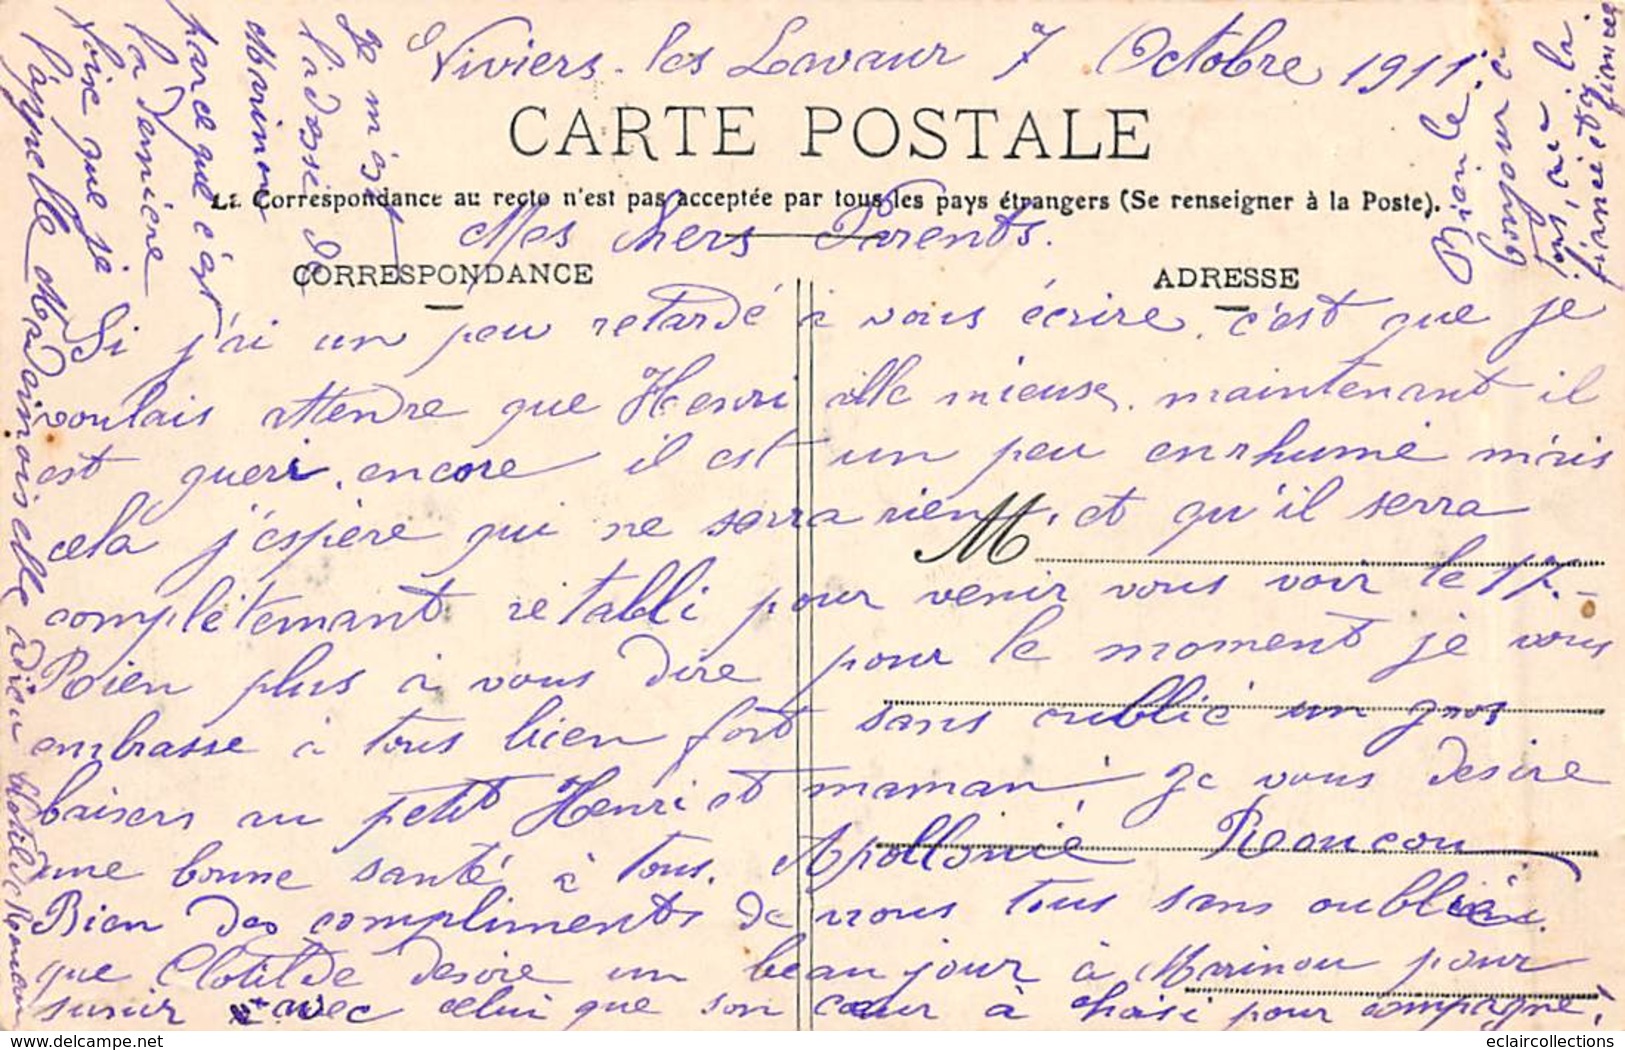 Viviers-les Lavaur 7 Octobre 1911.
CARTE POSTALE
La Correspondance au recto n'est pas acceptée par tous les pays étrangers (Se renseigner à la Poste).
Mes Chers Parents.
CORRESPONDANCE
ADRESSE
Si j'ai un peu retardé à vous écrire, c'est que je
voulais attendre que Henri aille mieuse, maintenant il
est gueri, encore il est un peu enrhumé mais
cela j'espère qui ne serra rien, et qu'il serra
M
complétemant rétabli pour venir vous voir le 17.-
Rien plus à vous dire pour le moment je vous
embrasse à tous bien fort sans oublié un gros
baisers au petit Henri et maman, Je vous desire
une bonne santé à tous. Apollonie Reaucou
Bien des compliments de nous tous sans oublier
que Clotilde desire un beau jour à Marinou pour
sunir avec celui que son cœur à choisi pour compagne,
Je m'est
l'adosse de
Marinou
parce que c'est
la dernière
fois que je
l'appelle Mademoiselle adieu Clotilde Romain
Bien le
bonjour a
la
fiancée
eclaircollections